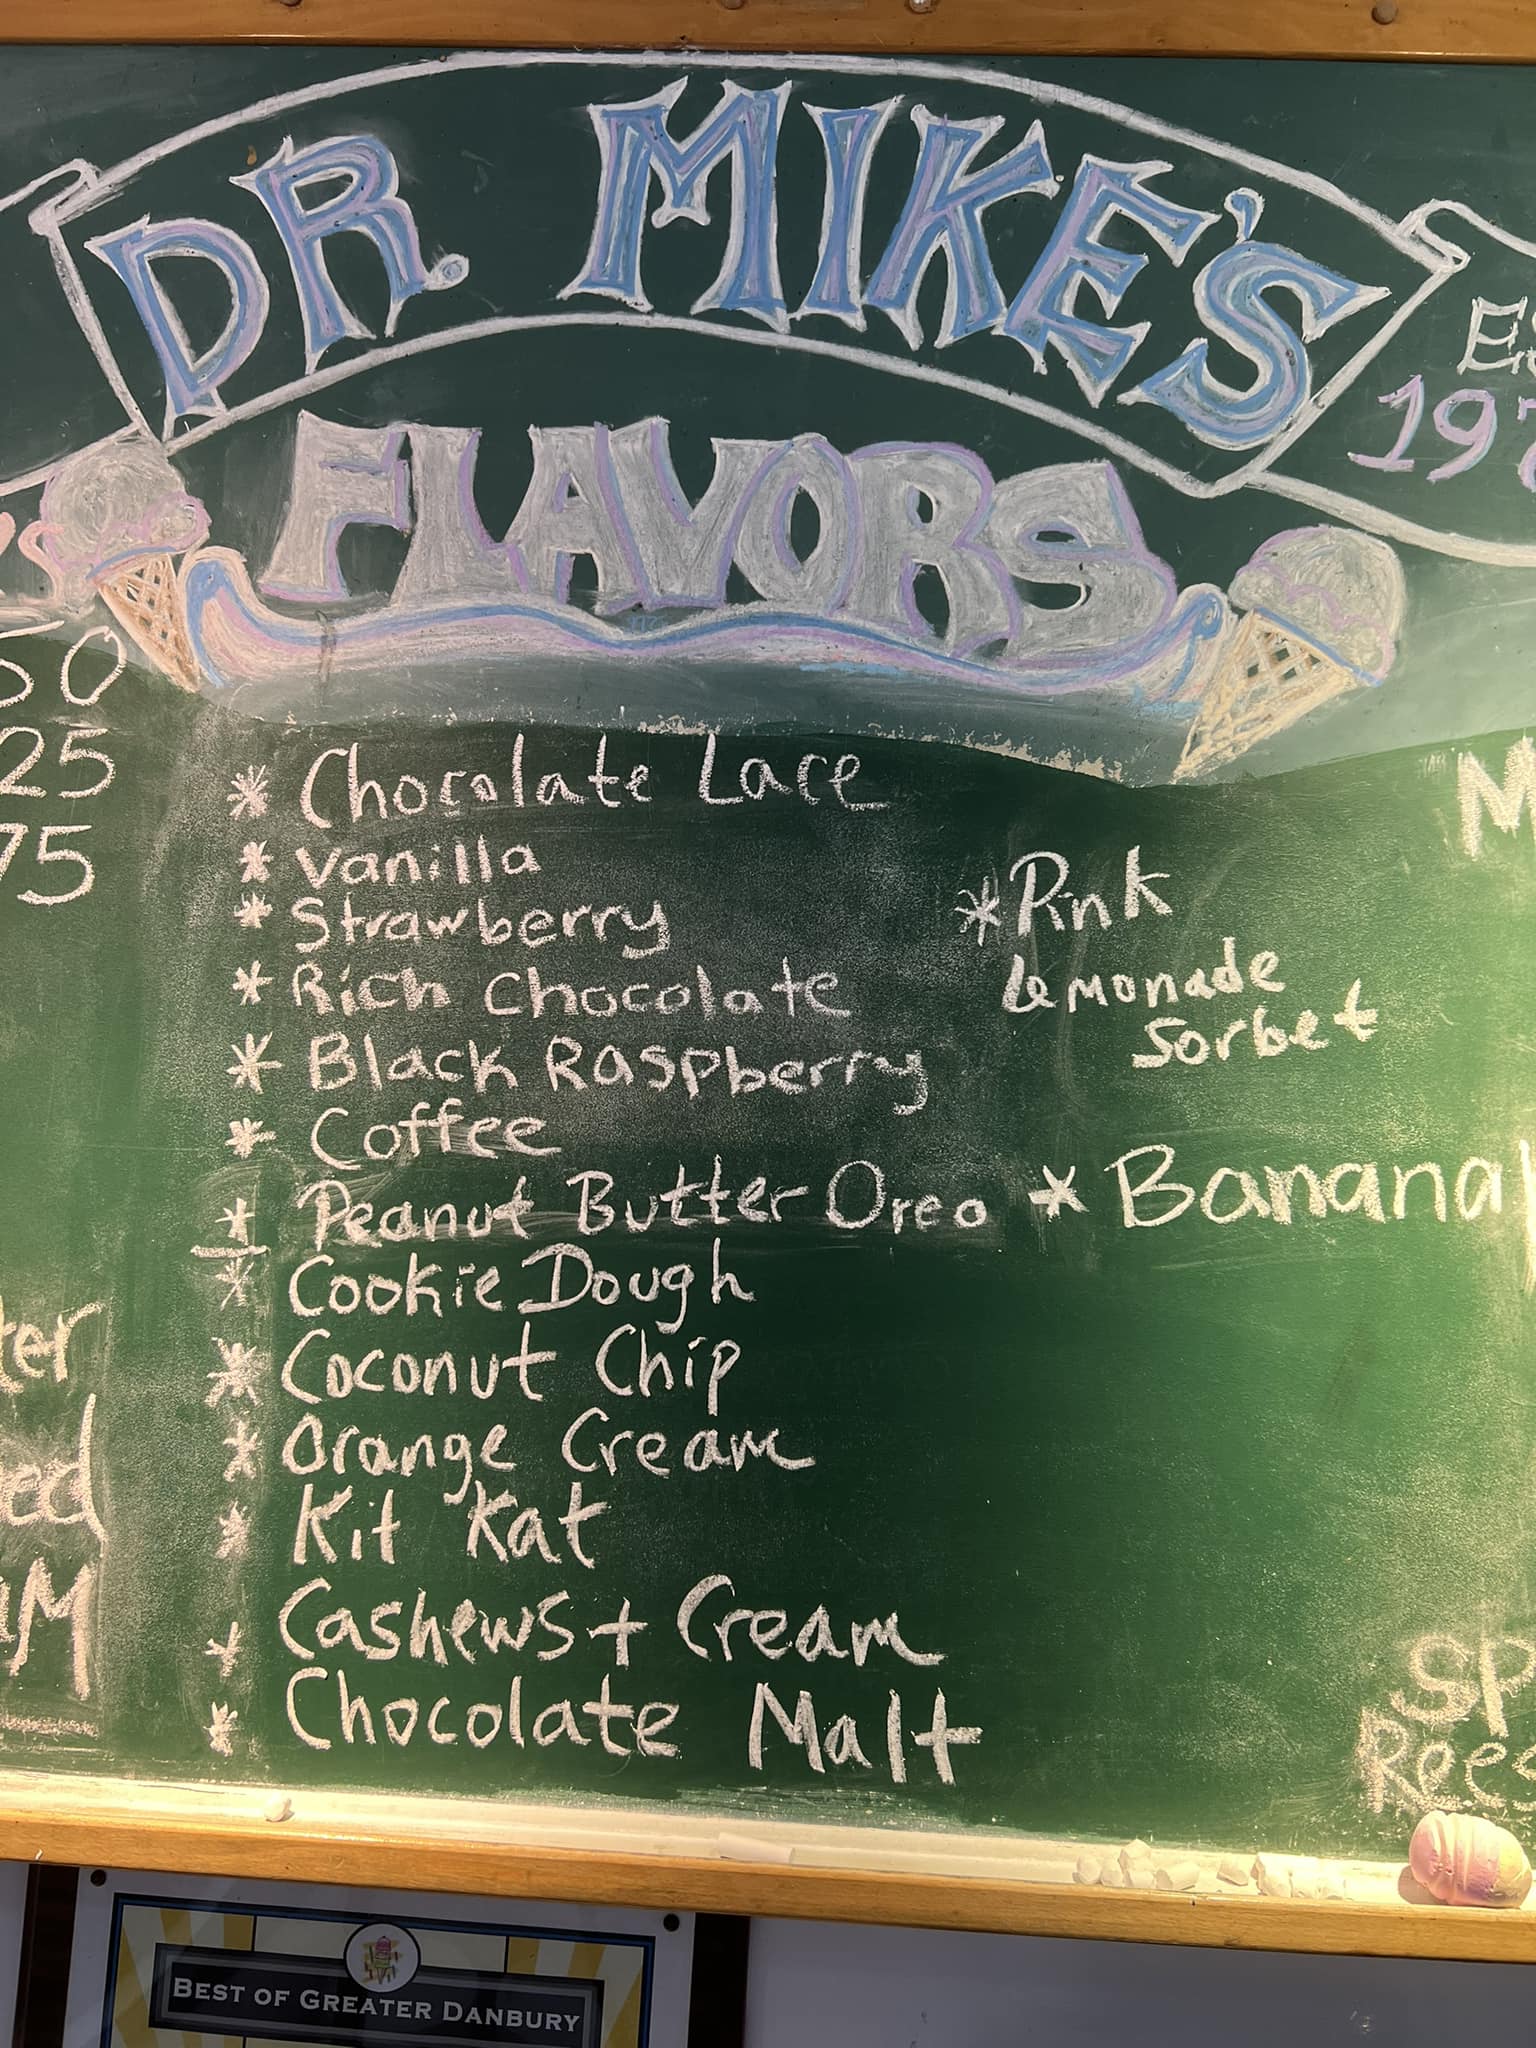 DR. MIKE'S
FLAVORS
50
25
75
* Chocolate Lace
* Vanilla
* Strawberry
* Rich Chocolate
* Black Raspberry
* Coffee
* Peanut Butter Oreo
* Cookie Dough
* Coconut Chip
* Orange Cream
* Kit Kat
* Cashews + Cream
* Chocolate Malt
* Pink
Lemonade
Sorbet
* Banana
BEST OF GREATER DANBURY